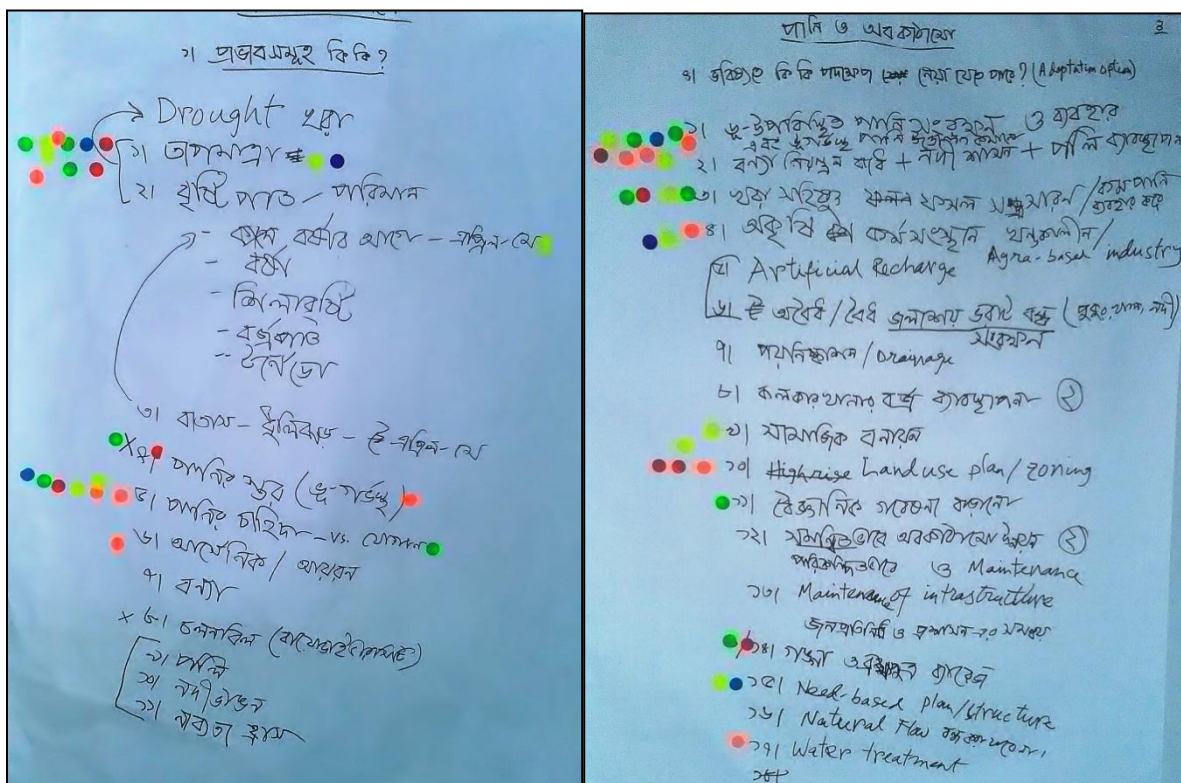 ১। প্রভাবসমূহ কি কি?
Drought খরা
১। তাপমাত্রা
২। বৃষ্টি পাত - পরিমান
- বর্ষার আগে - এপ্রিল-মে
- বর্ষা
- শিলাবৃষ্টি
- বজ্রপাত
- টর্নেডো
৩। বাতাস - ধূলিঝড় - এপ্রিল-মে
x ৪। পানির স্তর (ভূ-গর্ভস্থ)
৫। পানির চাহিদা - vs. যোগান
৬। আর্সেনিক / আয়রন
৭। বন্যা
x ৮। চলনবিল
৯। পলি
১০। নদীভাঙন
১১। নাব্যতা হ্রাস
পানি ও অবকাঠামো
3
৪। ভবিষ্যতে কি কি পদক্ষেপ নেয়া যেতে পারে? (Adaptation option)
১। ভূ-উপরিস্থিত পানি সংরক্ষন ও ব্যবহার
এবং ভূগর্ভস্থ পানি উত্তোলন কমানো
২। বন্যা নিয়ন্ত্রন বাঁধ + নদী শাসন + পলি ব্যবস্থাপনা
৩। খরা সহিষ্ণু ফসল সম্প্রসারন / কম পানি ব্যবহার করে
৪। অকৃষি কর্মসংস্থান খন্ডকালীন /
Agra-based industry
৫। Artificial Recharge
৬। অবৈধ / বৈধ জলাশয় ভরাট বন্ধ (পুকুর, খাল, নদী)
সংরক্ষন
৭। পয়নিষ্কাশন / Drainage
৮। কলকারখানার বর্জ্য ব্যবস্থাপনা ২
৯। সামাজিক বনায়ন
১০। Highrise Land use plan / zoning
১১। বৈজ্ঞানিক গবেষনা বাড়ানো
১২। সমন্বিতভাবে অবকাঠামো উন্নয়ন ২
পরিকল্পিতভাবে ও Maintenance
১৩। Maintenance of infrastructure
জনপ্রতিনিধি ও প্রশাসন এর সমন্বয়
১৪। গঙ্গা ব্যারেজ
১৫। Need-based plan/structure
১৬। Natural Flow
১৭। Water treatment
১৮।